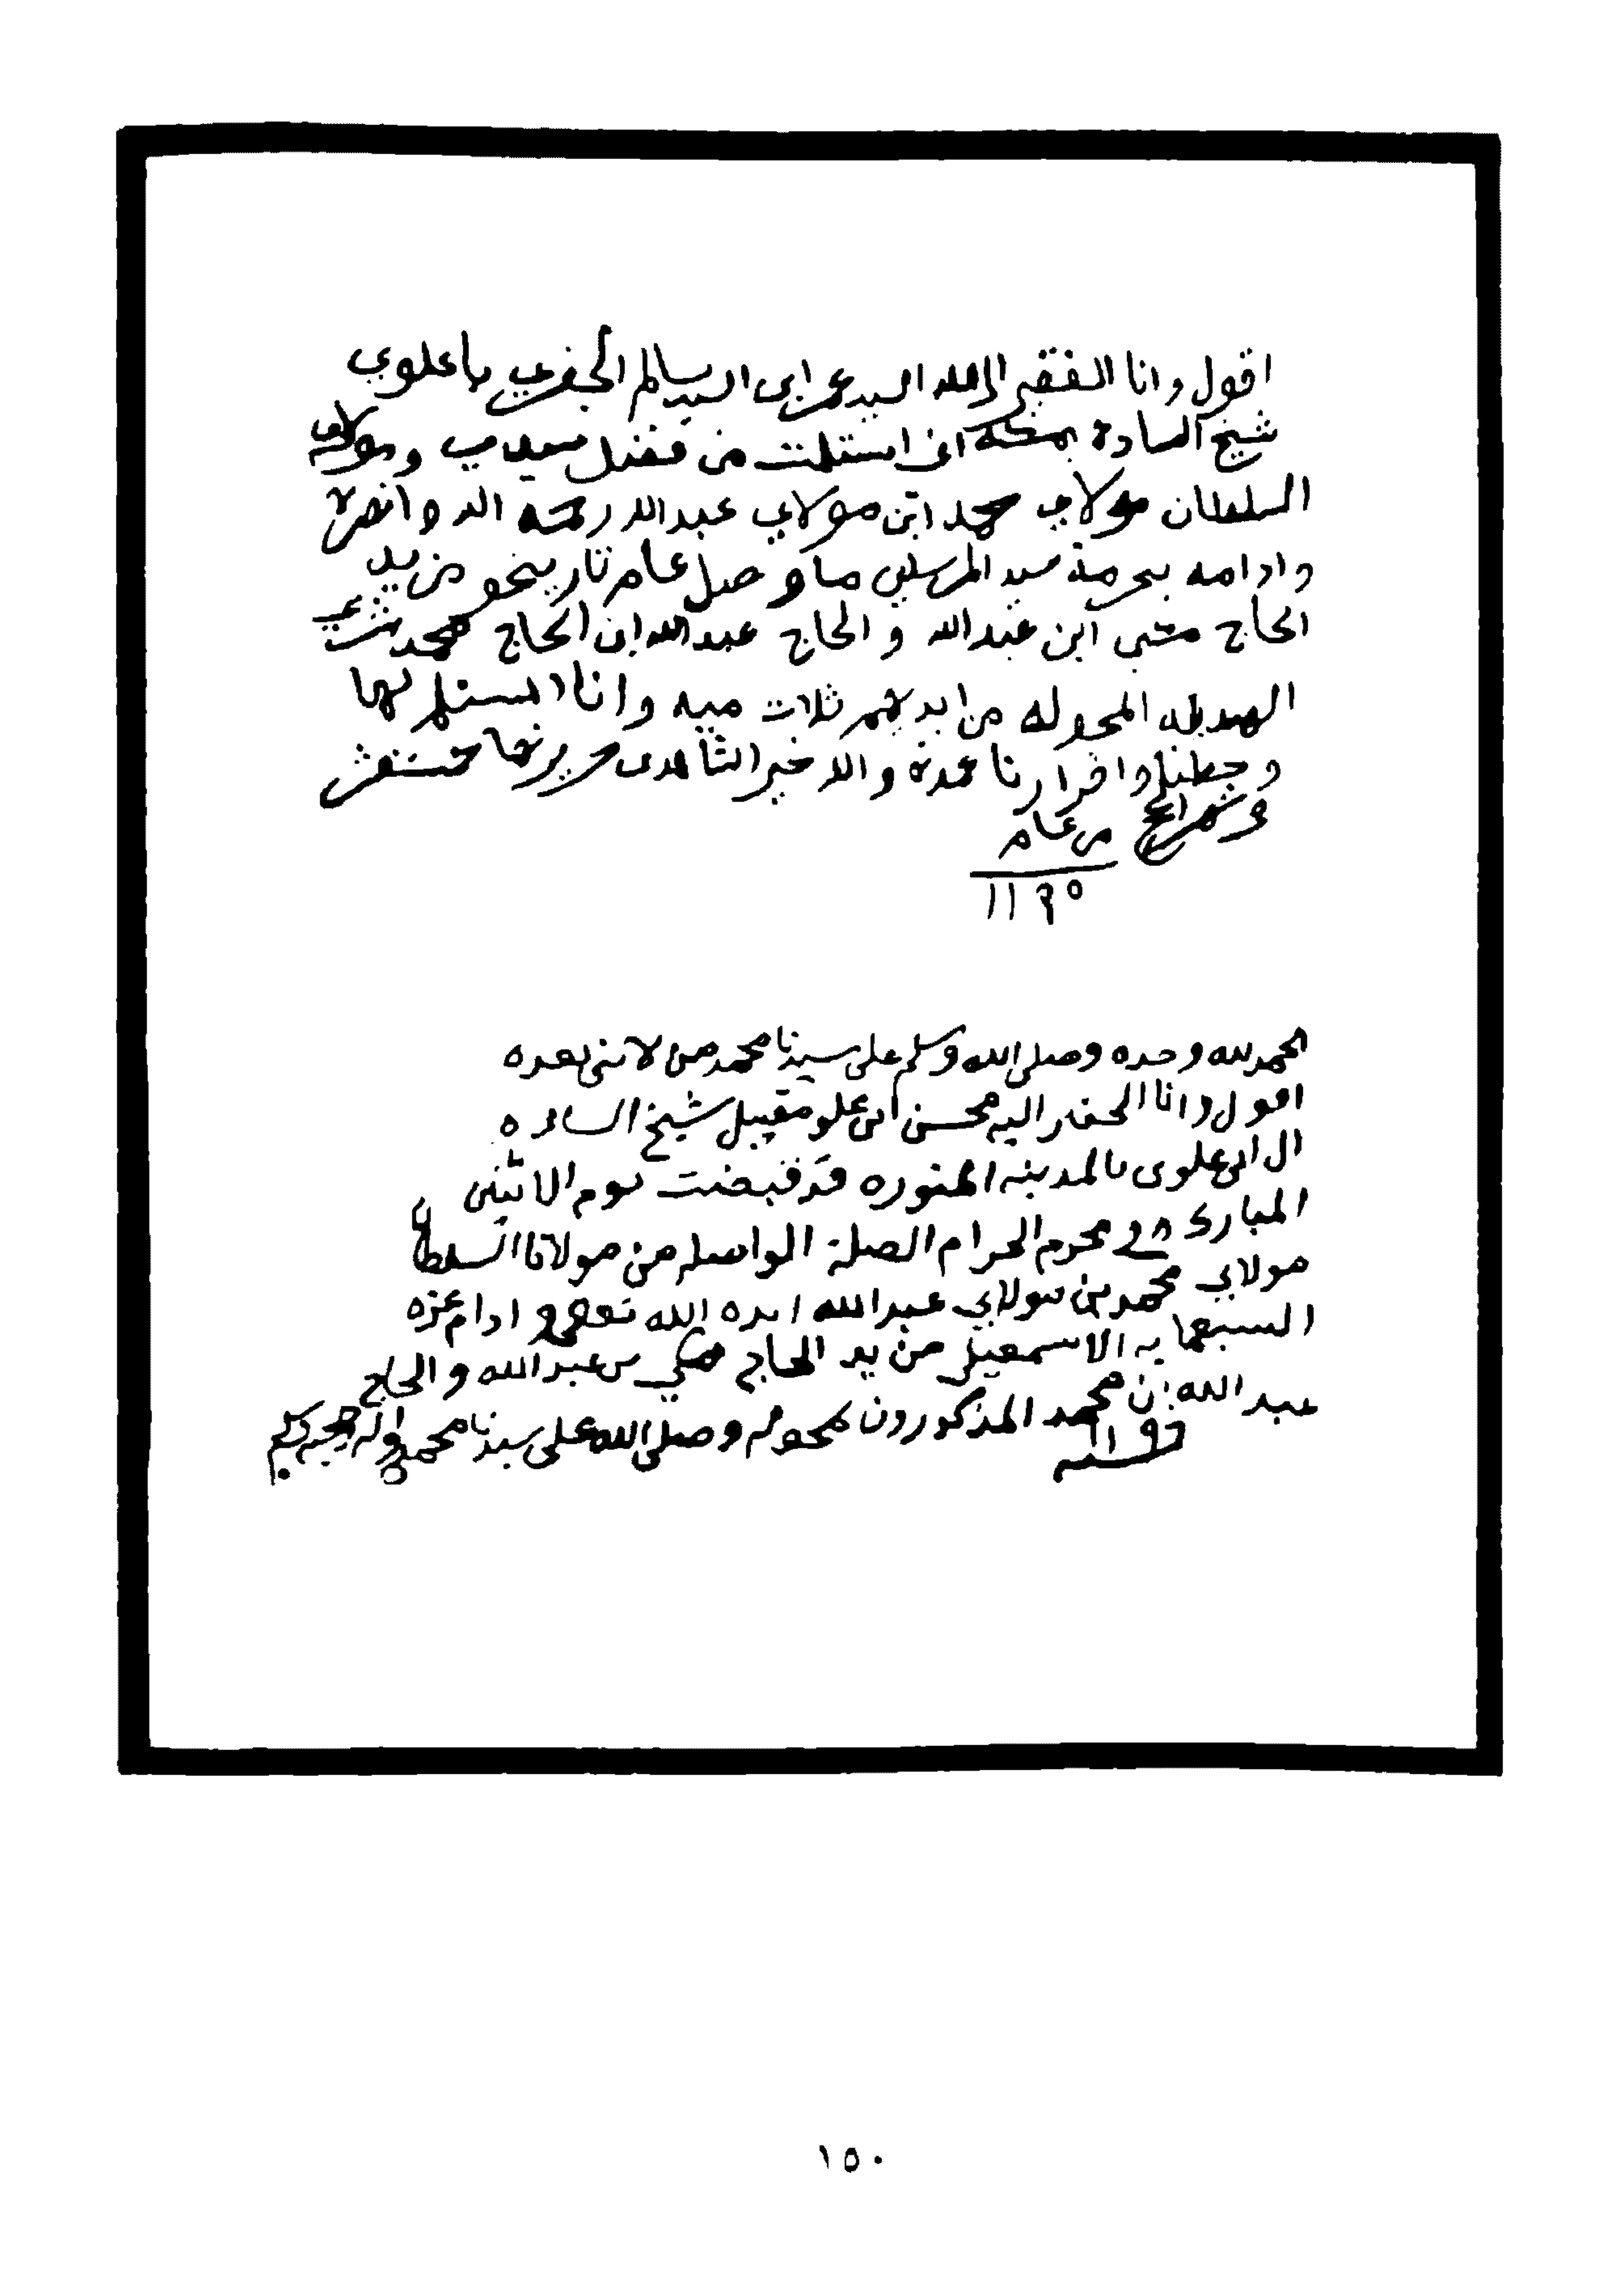 اقول وانا الفقير الى الله السيد عمر ابن السيد سالم الجفري باعلوي
شيخ السادة بمكة اني استلمت من فضل سيدي ومولاي
السلطان مولاي محمد ابن مولاي عبدالله رحمه الله وانصره
وادامه بحرمة سيد المرسلين ما وصل عام تاريخو من يد
الحاج ابن عبدالله و الحاج عبدالله ابن الحاج محمد
المحوله من ايديهم ثلاث ميه وانا المستلم لهما
وخطنا واقرارنا عمدة والله خير الشاهدين
من عام
١١٩٥
الحمد لله وحده وصلى الله وسلم على سيدنا محمد من لا نبي بعده
اقول وانا الحقير اليه محسن ابن علو مقيبل شيخ الساده
ال ابي علوى بالمدينه المنوره قد قبضت يوم الاثنين
المبارك محرم الحرام الصلة الواصله من مولانا السلطان
مولاي محمد بن مولاي عبدالله ايده الله وادام عزه
من يد الحاج مكي بن عبدالله والحاج
عبدالله بن محمد المذكورون وصلى الله على سيدنا محمد واله وصحبه وسلم
١٥٠